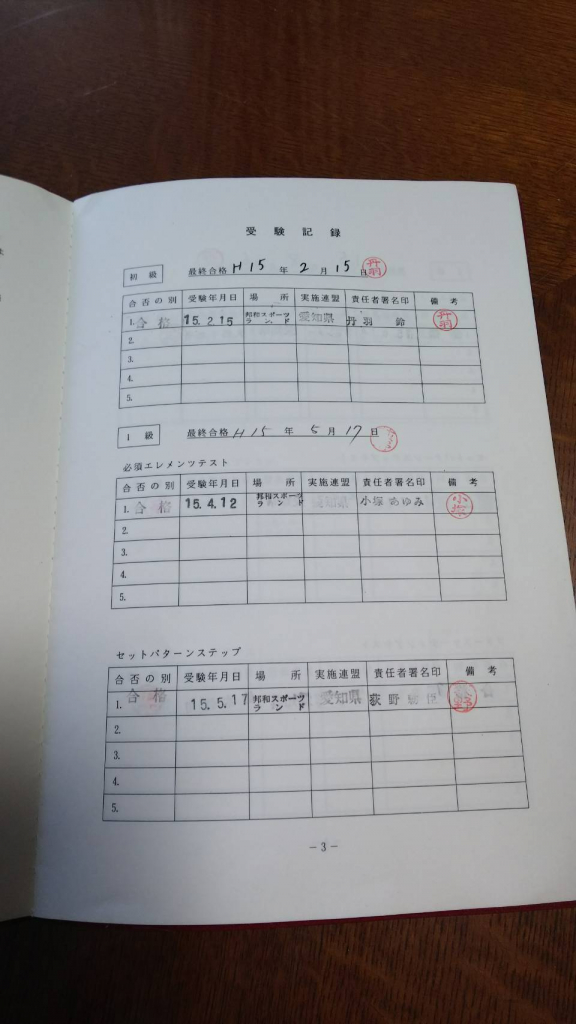 受験記録
初級 最終合格 H15 年 2 月 15 日 丹羽
合否の別 受験年月日 場所 実施連盟 責任者署名印 備考
1. 合格 15.2.15 邦和スポーツランド 愛知県 丹羽 鈴 丹羽
2.
3.
4.
5.
1級 最終合格 H15 年 5 月 17 日
必須エレメンツテスト
合否の別 受験年月日 場所 実施連盟 責任者署名印 備考
1. 合格 15.4.12 邦和スポーツランド 愛知県 小塚 あゆみ 小塚
2.
3.
4.
5.
セットパターンステップ
合否の別 受験年月日 場所 実施連盟 責任者署名印 備考
1. 合格 15.5.17 邦和スポーツランド 愛知県 荻野
2.
3.
4.
5.
－3－